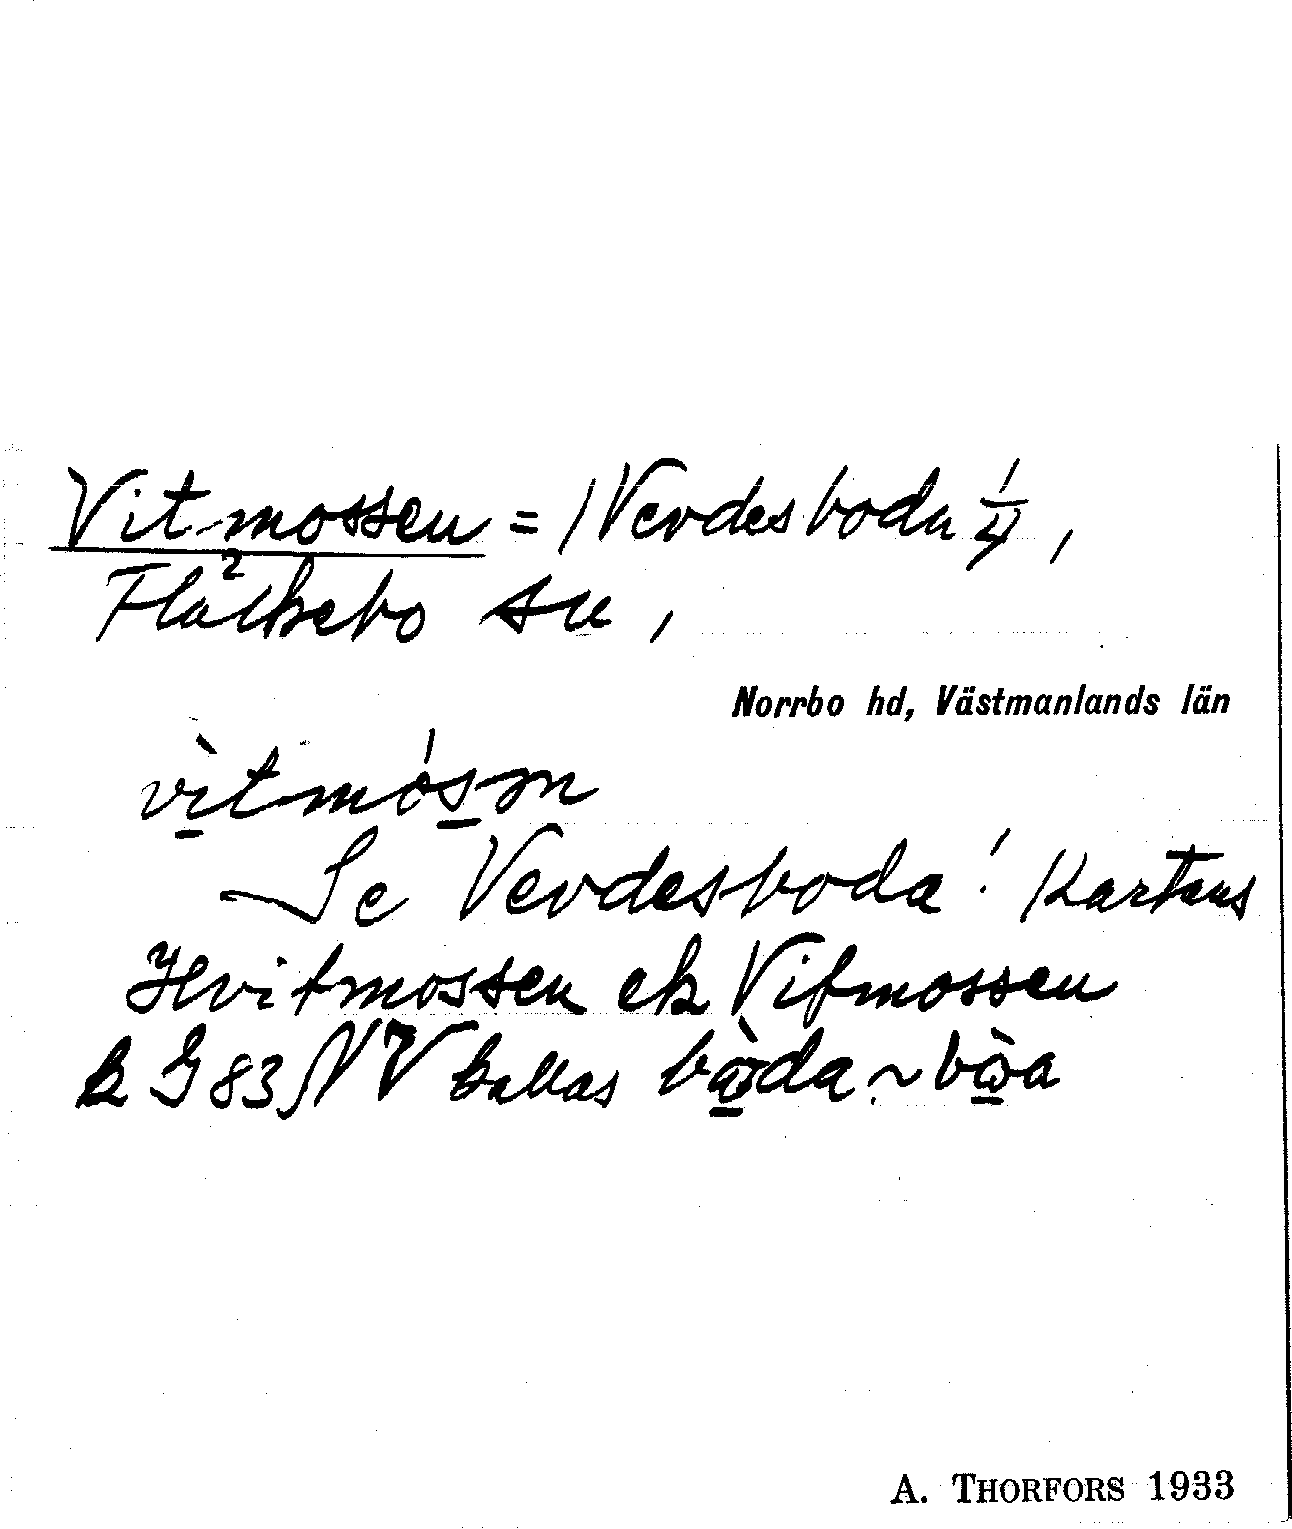 Vitmossen = /Verdesboda 1/4,
Fläckebo sn,
Norrbo hd, Västmanlands län
vìtmósn
Se Verdesboda! Kartans
Hvitmossen ek Vitmossen
k G 83 NV kallas
A. THORFORS 1933